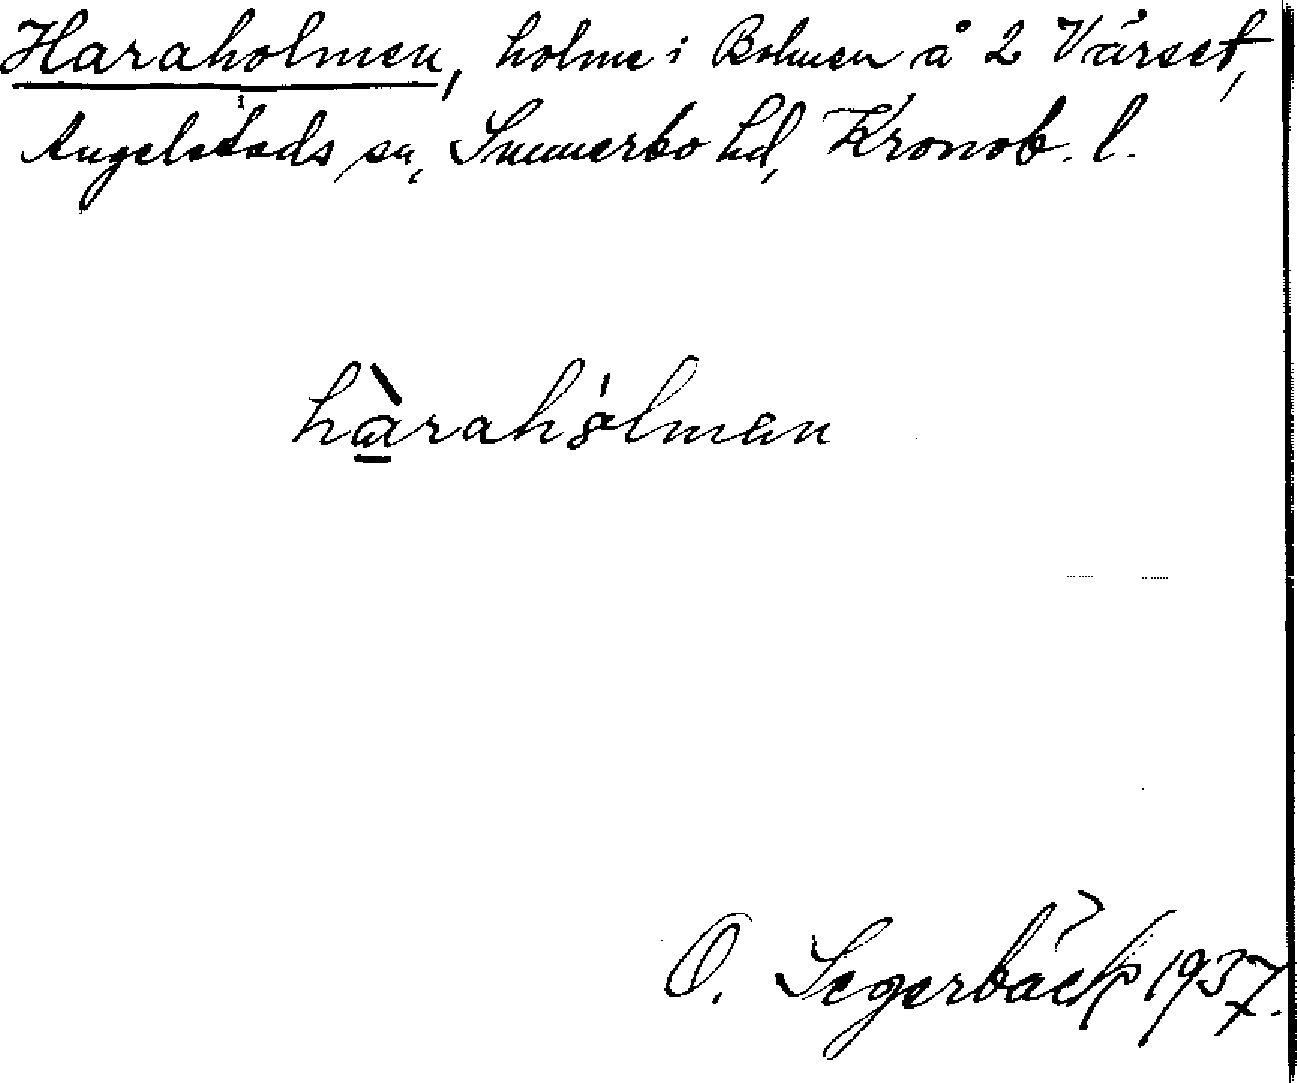 Haraholmen, holme i Bolmen å 2 Vårset,
Angelstads sn, Sunnerbo hd, Kronob. l.
hàrahólman
O. Segerbäck 1937.